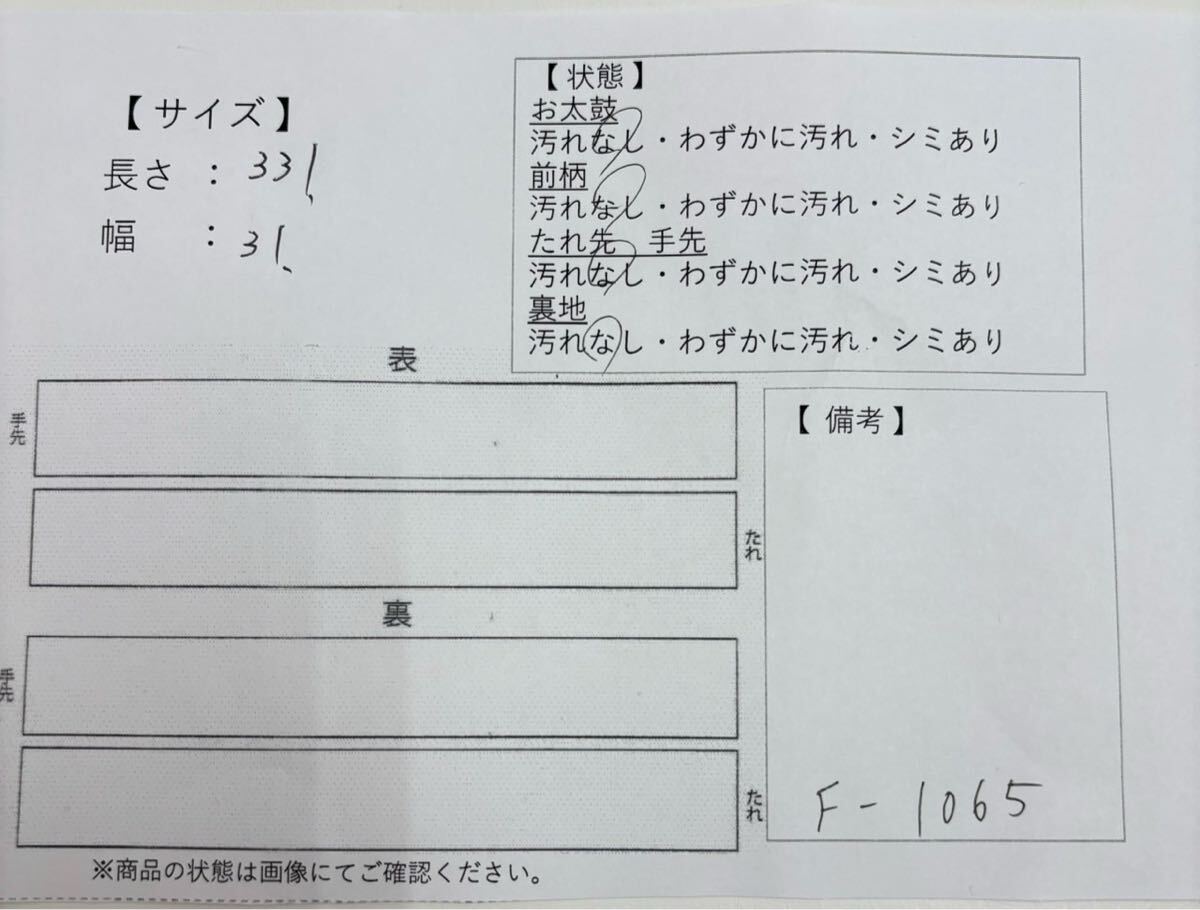 【 サイズ 】
長さ : 331.
幅 : 31.
【 状態 】
お太鼓
汚れなし・わずかに汚れ・シミあり
前柄
汚れなし・わずかに汚れ・シミあり
たれ先 手先
汚れなし・わずかに汚れ・シミあり
裏地
汚れなし・わずかに汚れ・シミあり
表
手先
たれ
裏
手先
たれ
【 備考 】
F-1065
※商品の状態は画像にてご確認ください。